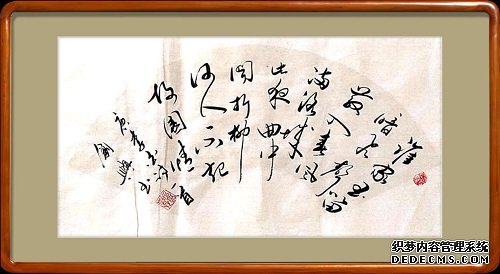 谁家玉笛
暗飞聲
散入春風
满洛城
此夜曲中
闻折柳
何人不起
故園情
织梦内容管理系统
DEDECMS.COM